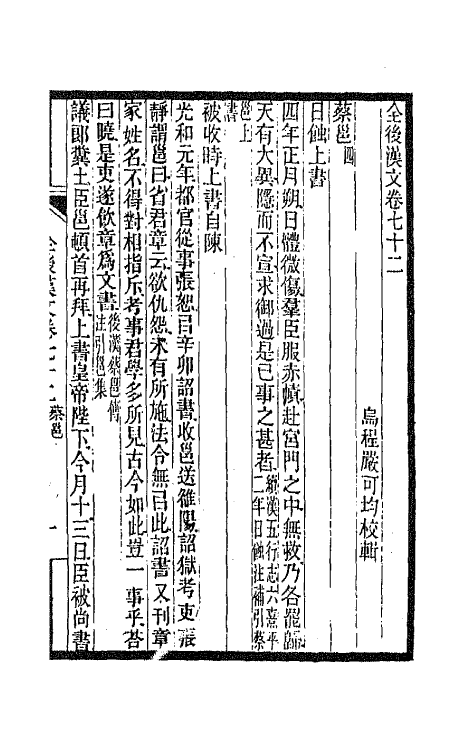 全後漢文卷七十二
烏程嚴可均校輯
蔡邕四
日蝕上書
四年正月朔日體微傷羣臣服赤幘赴宮門之中無救乃各罷歸
天有大異隱而不宣求御過是已事之甚者續漢五行志六熹平二年日蝕注補引蔡
邕上書
被收時上書自陳
光和元年都官從事張恕㠯辛卯詔書收邕送雒陽詔獄考吏張
靜謂邕曰省君章云欲仇怨未有所施法令無㠯此詔書又刊章
家姓名不得對相指斥考事君學多所見古今如此豈一事乎荅
曰曉是吏遂飲章爲文書後漢蔡邕傳注引邕集
議郎糞土臣邕頓首再拜上書皇帝陛下今月十三日臣被尚書
全後漢文卷七十二 蔡邕 一